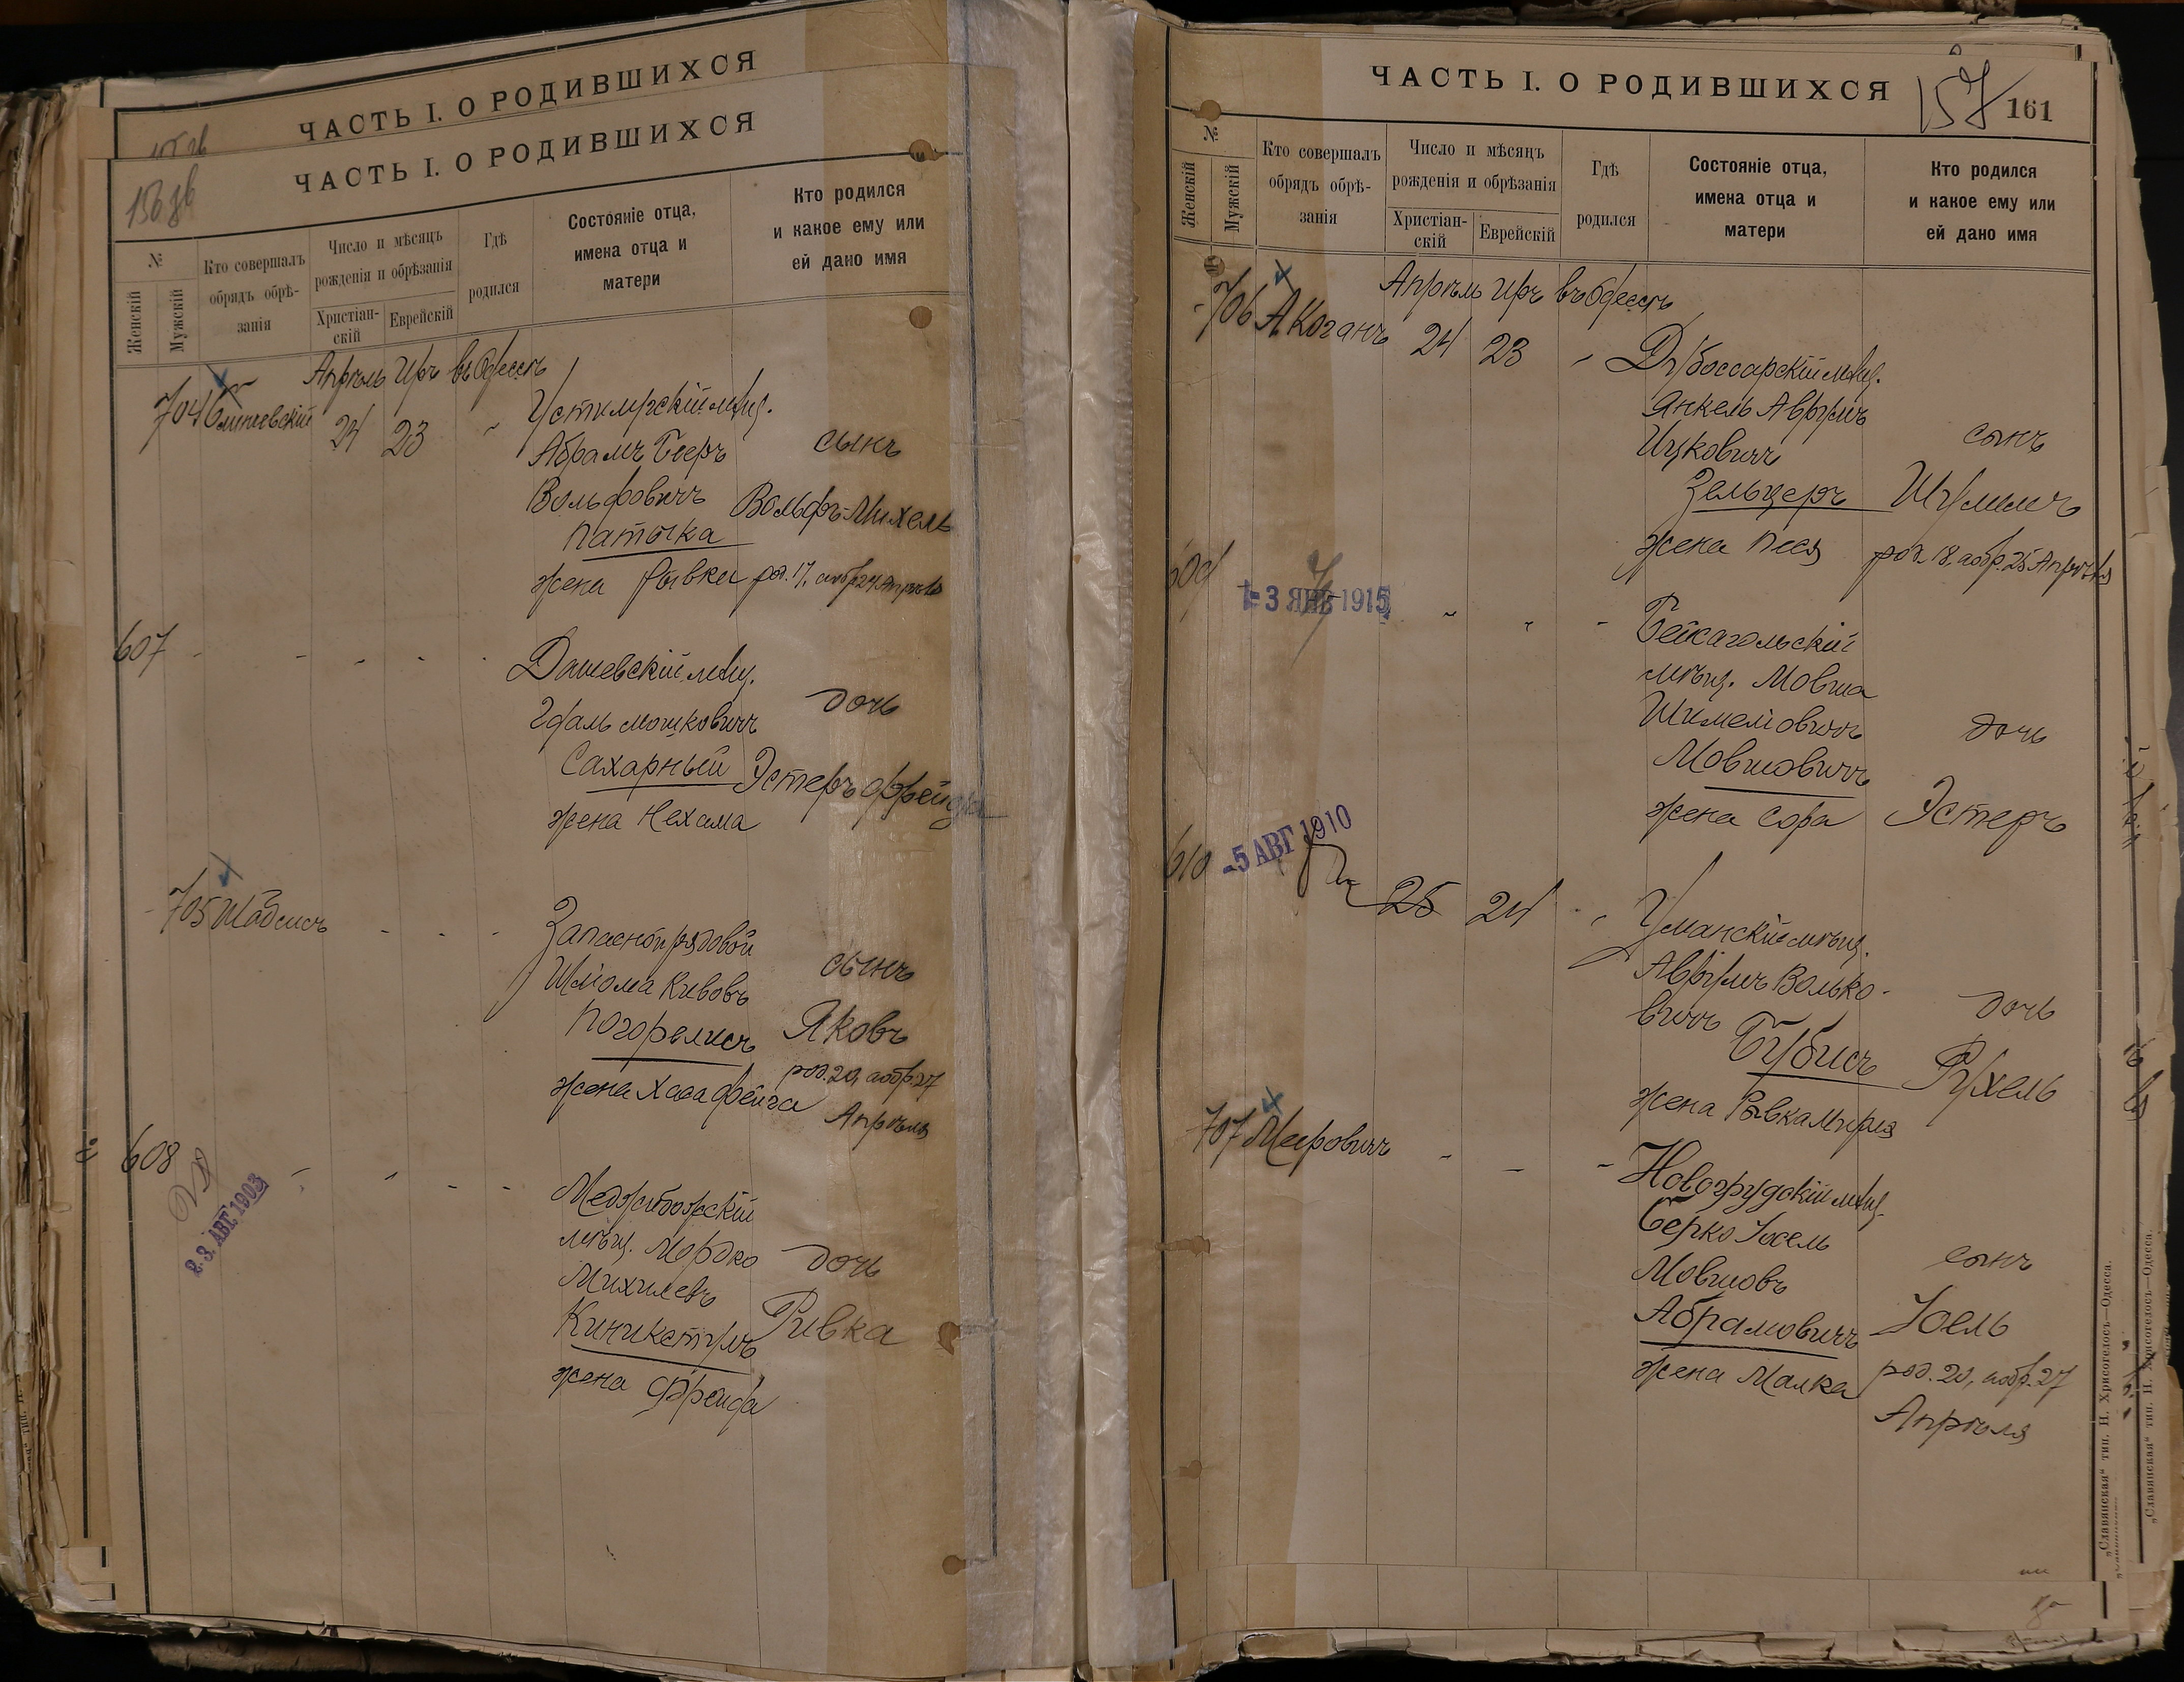 ЧАСТЬ I. О РОДИВШИХСЯ
ЧАСТЬ I. О РОДИВШИХСЯ
№
Женскій
Мужскій
Кто совершалъ
обрядъ обрѣ-
занія
Число и мѣсяцъ
рожденія и обрѣзанія
Христіан-
скій
Еврейскій
Гдѣ
родился
Состояніе отца,
имена отца и
матери
Кто родился
и какое ему или
ей дано имя
Апрѣль Иръ въ Одессѣ
704
24 23
мѣщ.
Абрамъ Беръ
Вольфовичъ
Патыка
жена Рывка
сынъ
Вольфъ-Михель
род. 17, апбр. 24 Апрѣля
607
Дашевскій мѣщ.
Гдаль Мошковичъ
Сахарный
жена Нехама
дочь
Эстеръ Фрейда
705 Шабсисъ
Запасной рядовой
Шліома Кивовъ
Погорелисъ
жена Хаса Фейга
сынъ
Яковъ
род. 20, аобр. 27
Апрѣля
608
2.3. АВГ. 1903
Меджибожскій
мѣщ. Мордко
Михилевъ
жена Фрейда
дочь
Ривка
ЧАСТЬ I. О РОДИВШИХСЯ
157
161
№
Женскій
Мужскій
Кто совершалъ
обрядъ обрѣ-
занія
Число и мѣсяцъ
рожденія и обрѣзанія
Христіан-
скій
Еврейскій
Гдѣ
родился
Состояніе отца,
имена отца и
матери
Кто родился
и какое ему или
ей дано имя
Апрѣль Иръ въ Одессѣ
706 А Коганъ 24 23
Дубоссарскій мѣщ.
Янкель Аврумъ
Ицковичъ
Зельцеръ
жена Песя
сынъ
Шулимъ
род. 18, аобр. 25 Апрѣля
609
3 ЯНВ 1915
мѣщ. Мовша
Шмеліовичъ
Мовшовичъ
жена Сора
дочь
Эстеръ
610
-5 АВГ 1910
25 24
Уманскій мѣщ.
Аврумъ Волько-
вичъ
Бубисъ
жена Рывка Мирля
дочь
Рухель
707 Меровичъ
Новогрудскій мѣщ.
Берко Іосель
Мовшовъ
Абрамовичъ
жена Малка
сынъ
Іоель
род. 20, аобр. 27
Апрѣля
„Славянская“ тип. Н. Хрисогелосъ—Одесса.
„Славянская“ тип. Н. Хрисогелосъ—Одесса.